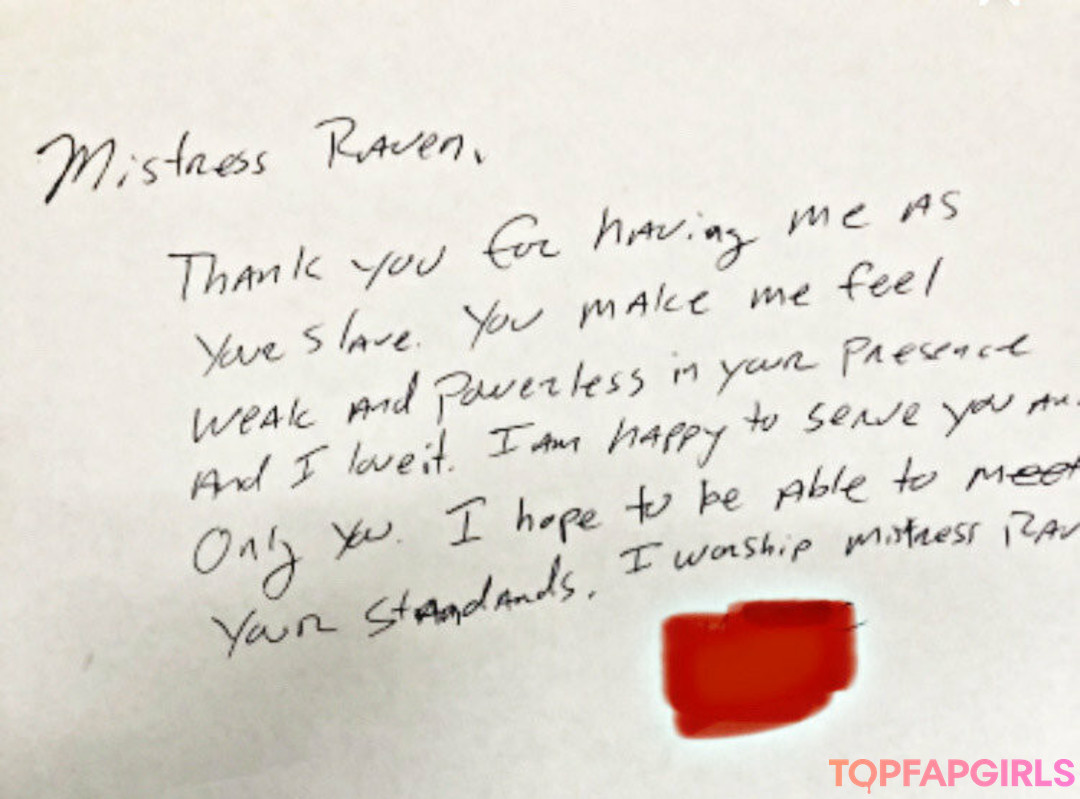 Mistress Raven,
Thank you for having me as
your slave. You make me feel
weak and powerless in your presence
and I love it. I am happy to serve you an
Only you. I hope to be able to meet
your standards. I worship mistress Rav
TOPFAPGIRLS